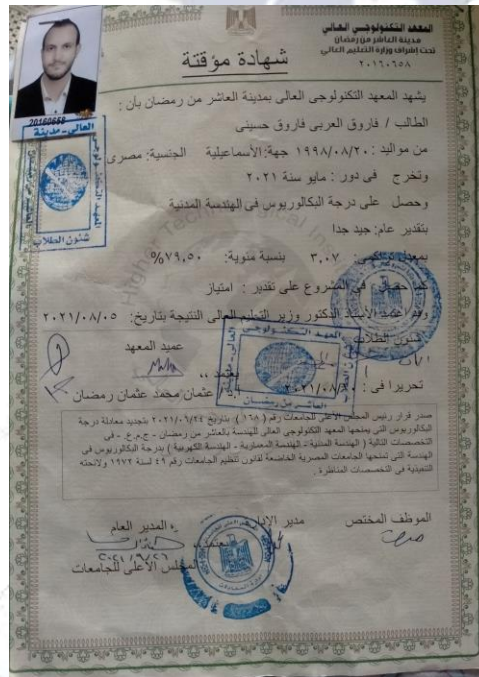 المعهد التكنولوجي العالي
مدينة العاشر من رمضان
تحت إشراف وزارة التعليم العالي
٢٠١٦٠٦٥٨
شهادة مؤقتة
20160658
يشهد المعهد التكنولوجى العالى بمدينة العاشر من رمضان بأن :
الطالب / فاروق العربى فاروق حسينى
من مواليد : ١٩٩٨/٠٨/٢٠ جهة: الأسماعيلية الجنسية: مصرى
وتخرج فى دور : مايو سنة ٢٠٢١
وحصل على درجة البكالوريوس فى الهندسة المدنية
بتقدير عام: جيد جدا
بمعدل تراكمى: ٣,٠٧ نسبة مئوية: ٧٩,٥٠%
كما حصل فى المشروع على تقدير : امتياز
وقد اعتمد الأستاذ الدكتور وزير التعليم العالى النتيجة بتاريخ: ٢٠٢١/٠٨/٠٥
شئون الطلاب
عميد المعهد
يعتمد ,,
تحريرا فى : ٢٠٢١/٠٨/٣٠
عثمان محمد عثمان رمضان
صدر قرار رئيس المجلس الأعلى للجامعات رقم (١٦٨) بتاريخ ٢٠٢١/٠٦/٢٤ بتجديد معادلة درجة
البكالوريوس التى يمنحها المعهد التكنولوجى العالى للهندسة بالعاشر من رمضان - ج.م.ع. - فى
التخصصات التالية (الهندسة المدنية - الهندسة المعمارية - الهندسة الكهربية) بدرجة البكالوريوس فى
الهندسة التى تمنحها الجامعات المصرية الخاضعة لقانون تنظيم الجامعات رقم ٤٩ لسنة ١٩٧٢ ولائحته
التنفيذية فى التخصصات المناظرة .
الموظف المختص
مدير الإدارة
المدير العام
يعتمد ,,
٢٠٢١/٩/٢٦
المجلس الأعلى للجامعات
العالى - مدينة
شئون الطلاب
المعهد التكنولوجى
العاشر من رمضان
Higher Technological Ins